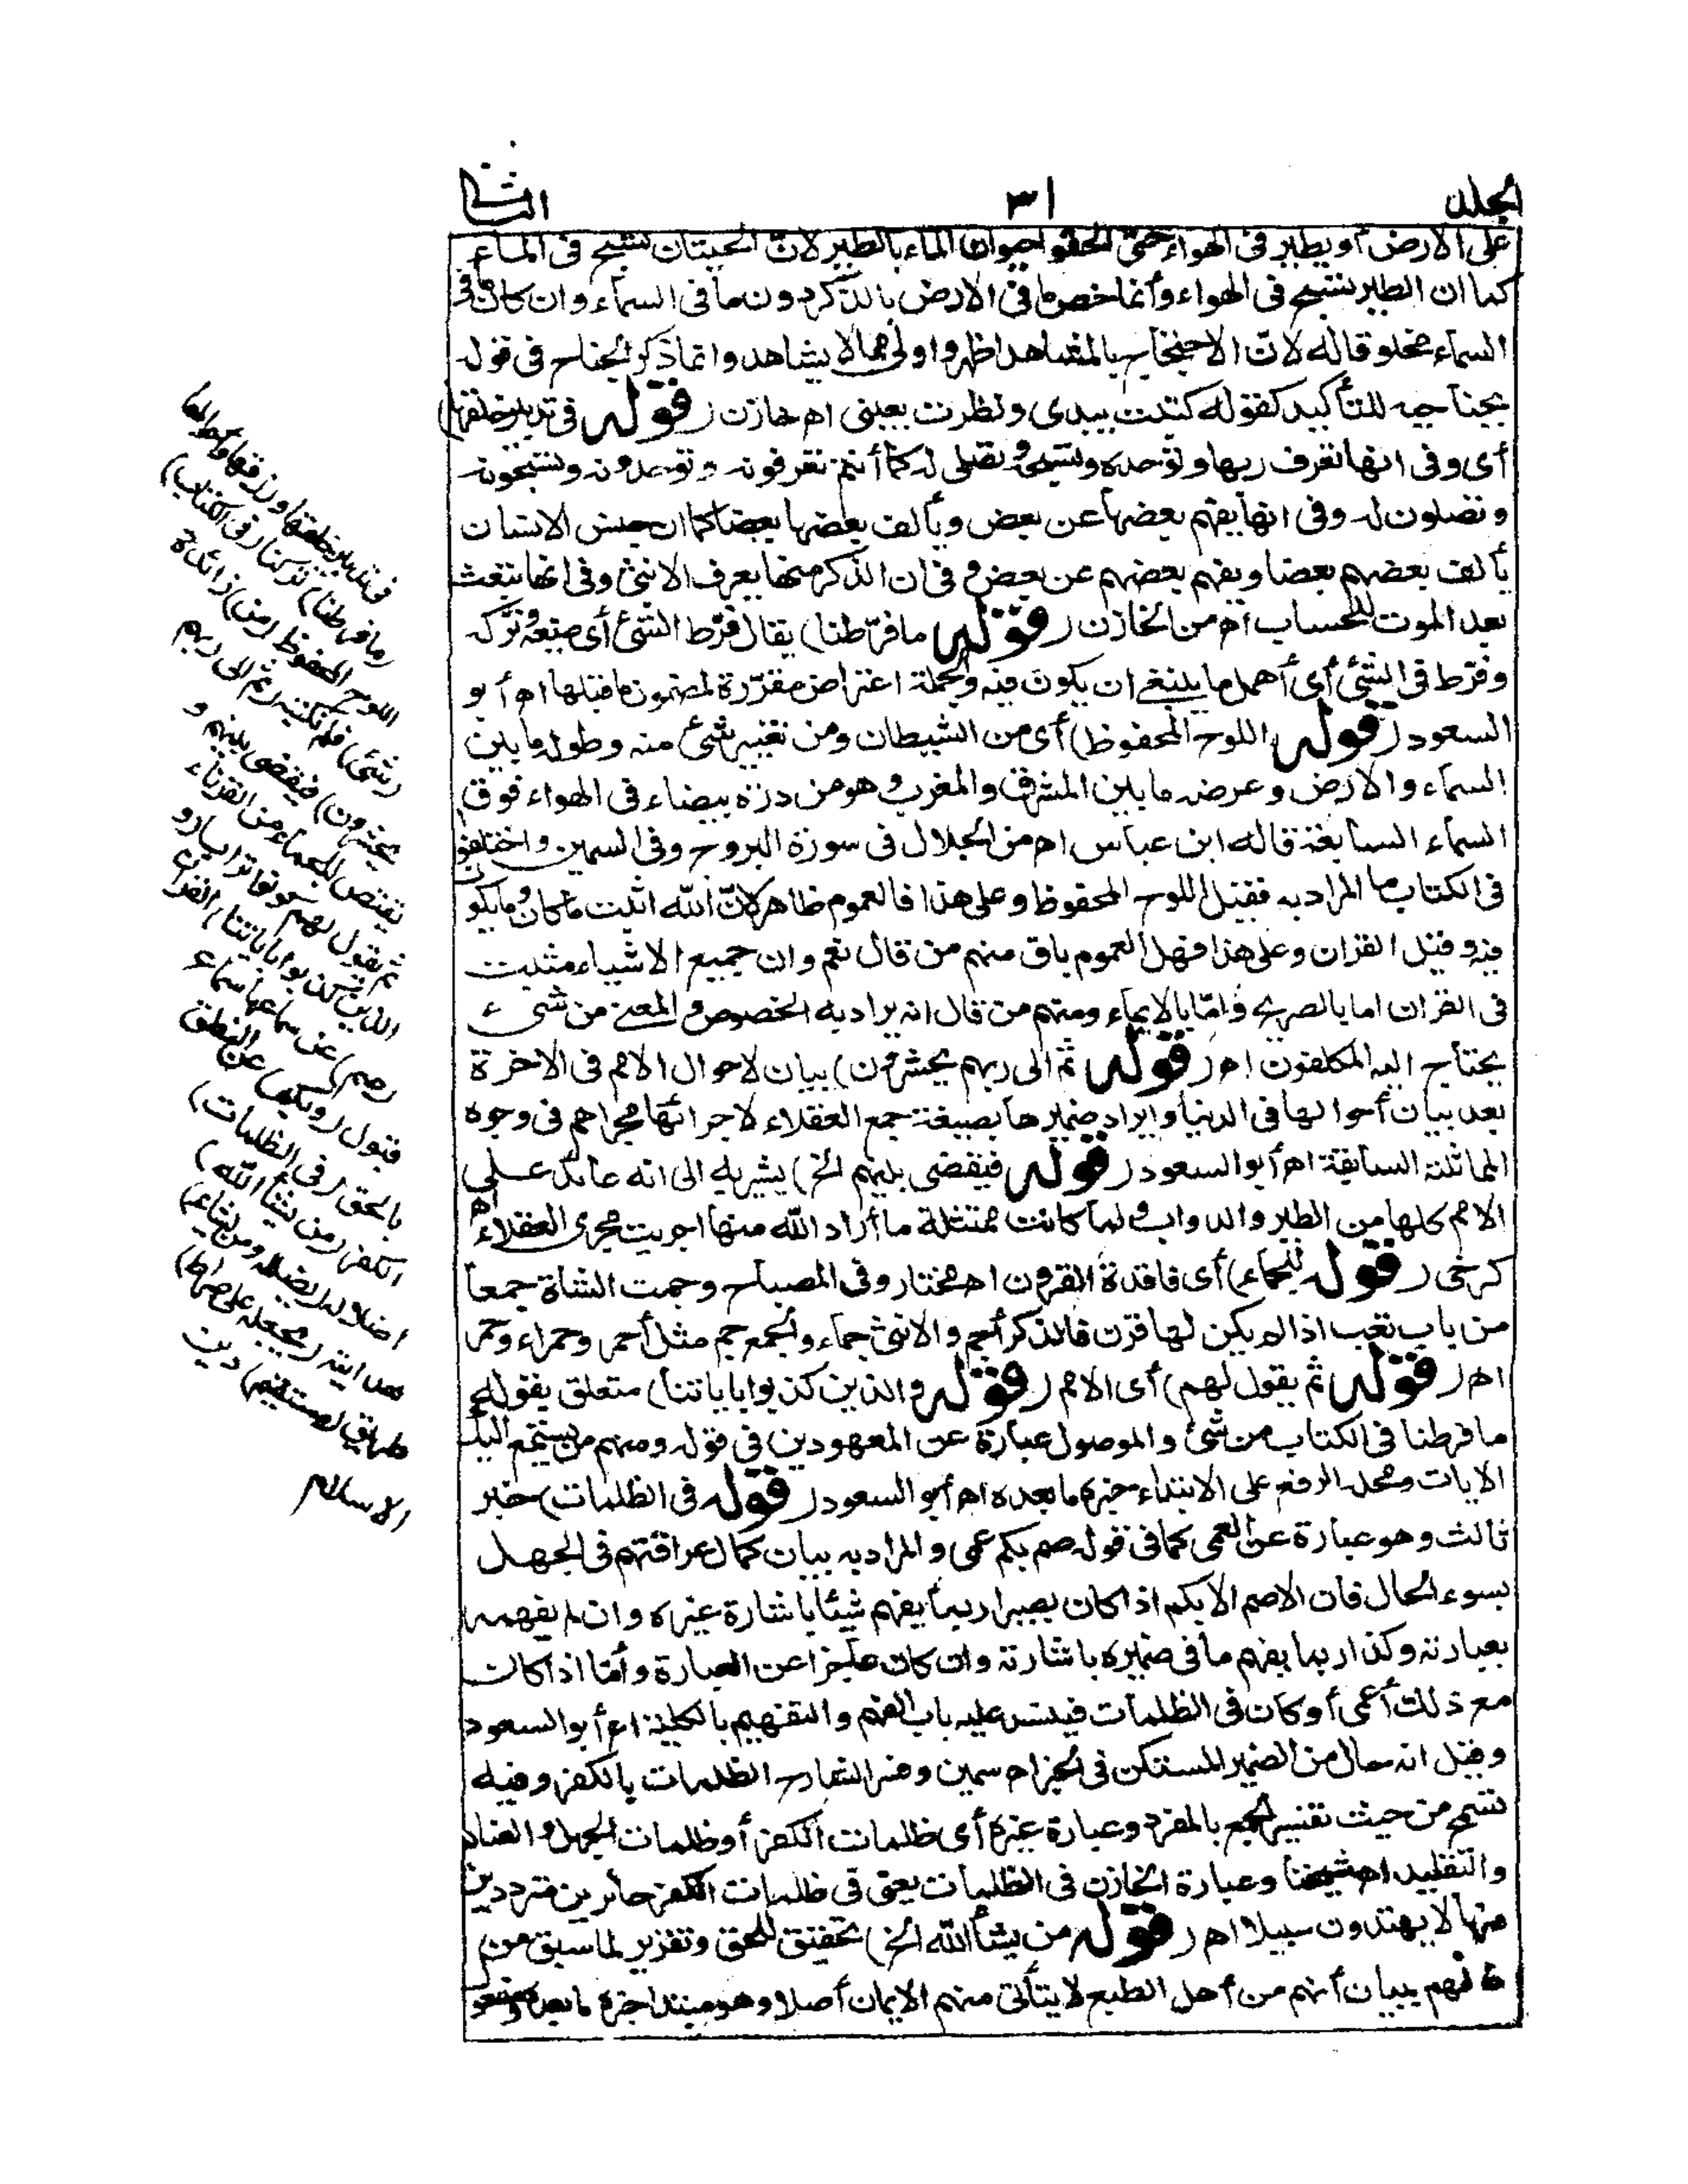 المجلد ٣١ الثانى
على الارض أو يطير فى الهواء حتى ألحقوا حيوان الماء بالطير لانّ الحيتان تسبح فى الماء
كما ان الطير يسبح فى الهواء وأنما خص ما فى الارض بالذّكر دون ما فى السمآء وان كان ما فى
السماء مخلوقا له لانّ الاحتجاج بالمشاهد اظهر واولى مما لا يشاهد وانما ذكر الجناح فى قوله
بجناحيه للتأكيد كقوله كتبت بيدى ونظرت بعينى اه خازن ( قوله فى تدبير خلقها)
أى وفى انها تعرف ربها وتوحده وتسبحه وتصلى له كما أنتم تعرفونه وتوحدونه وتسبحونه
وتصلون له وفى انها يفهم بعضها عن بعض ويألف بعضها بعضا كما ان جنس الانسان
يألف بعضهم بعضا ويفهم بعضهم عن بعض وفى ان الذكر منها يعرف الانثى وفى انها تبعث
بعد الموت للحساب اه من الخازن ( قوله ما فرّطنا) يقال فرّط الشئ أى ضيعه وتركه
وفرّط فى الشئ أى أهمل ما ينبغى ان يكون فيه والجملة اعتراض مقرّرة لمضمون ما قبلها اه أبو
السعود ( قوله اللوح المحفوظ) أى من الشيطان ومن تغيير شئ منه وطوله ما بين
السماء والارض وعرضه ما بين المشرق والمغرب وهو من درّة بيضاء فى الهواء فوق
السماء السابعة قاله ابن عباس اه من الجلال فى سورة البروج وفى السمين واختلفوا
فى الكتاب ما المراد به فقيل اللوح المحفوظ وعلى هذا فالعموم ظاهر لانّ الله اثبت ما كان وما يكون
فيه وقيل القران وعلى هذا فهل العموم باق منهم من قال نعم وان جميع الاشياء مثبت
فى القران اما بالصريح وامّا بالايماء ومنهم من قال انه يراد به الخصوص والمعنى من شىء
يحتاج اليه المكلفون اه ( قوله ثم الى ربهم يحشرون) بيان لاحوال الامم فى الاخرة
بعد بيان أحوالها فى الدنيا وايراد ضميرها بصيغة جمع العقلاء لاجرائها مجراهم فى وجوه
المماثلة السابقة اه أبو السعود ( قوله فيقضى بينهم الخ) يشير به الى انه عائد على
الامم كلها من الطير والدواب ولما كانت ممتثلة ما أراد الله منها اجريت مجرى العقلاء اه
كرخى ( قوله للجماء) أى فاقدة القرون اه مختار وفى المصباح وجمت الشاة جمعا
من باب تعب اذا لم يكن لها قرن فالذكر أجم والانثى جماء والجمع جم مثل أحمر وحمراء وحمر
اه ( قوله ثم يقول لهم) أى الامم ( قوله والذين كذبوا باياتنا) متعلق بقوله
ما فرطنا فى الكتاب من شئ والموصول عبارة عن المعهودين فى قوله ومنهم من يستمع اليك
الايات ومحله الرفع على الابتداء خبره ما بعده اه أبو السعود ( قوله فى الظلمات) خبر
ثالث وهو عبارة عن العمى كما فى قوله صم بكم عمى والمراد به بيان كمال عراقتهم فى الجهل
بسوء الحال فان الاصم الابكم اذا كان بصيرا ربما يفهم شيئا باشارة غيره وان لم يفهمه
بعبارته وكذا ربما يفهم ما فى ضميره باشارته وان كان عاجزا عن العبارة وأمّا اذا كان
مع ذلك أعمى أو كان فى الظلمات فينسد عليه باب الفهم والتفهيم بالكلية اه أبو السعود
وقيل انه حال من الضمير المستكن فى الخبر اه سمين وفسر الشارح الظلمات بالكفر وفيه
تسمح من حيث تفسير الجمع بالمفرد وعبارة غيره أى ظلمات الكفر أو ظلمات الجهل والعناد
والتقليد اه شيخنا وعبارة الخازن فى الظلمات يعنى فى ظلمات الكفر حائرين مترددين
منها لا يهتدون سبيلا اه ( قوله من يشأ الله الخ) تحقيق للحق وتقرير لما سبق من
لهم ببيان أنهم من أهل الطبع لا يتأتى منهم الايمان أصلا وهو مبتدا خبره ما بعده
فى تدبير خلقها ورزقها وأحوالها
(ما فرطنا) تركنا (فى الكتاب)
اللوح المحفوظ (من) زائدة
(شئ) فلم نكتبه (ثم الى ربهم
يحشرون) فيقضى بينهم و
يقتص للجماء من القرناء
ثم يقول لهم كونوا ترابا (و
الذين كذبوا باياتنا) القران
(صم) عن سماعها سماع
قبول (وبكم) عن النطق
بالحق (فى الظلمات)
الكفر (من يشأ الله)
اضلاله (يضلله ومن يشأ)
هدايته (يجعله على صراط)
طريق (مستقيم) دين
الاسلام